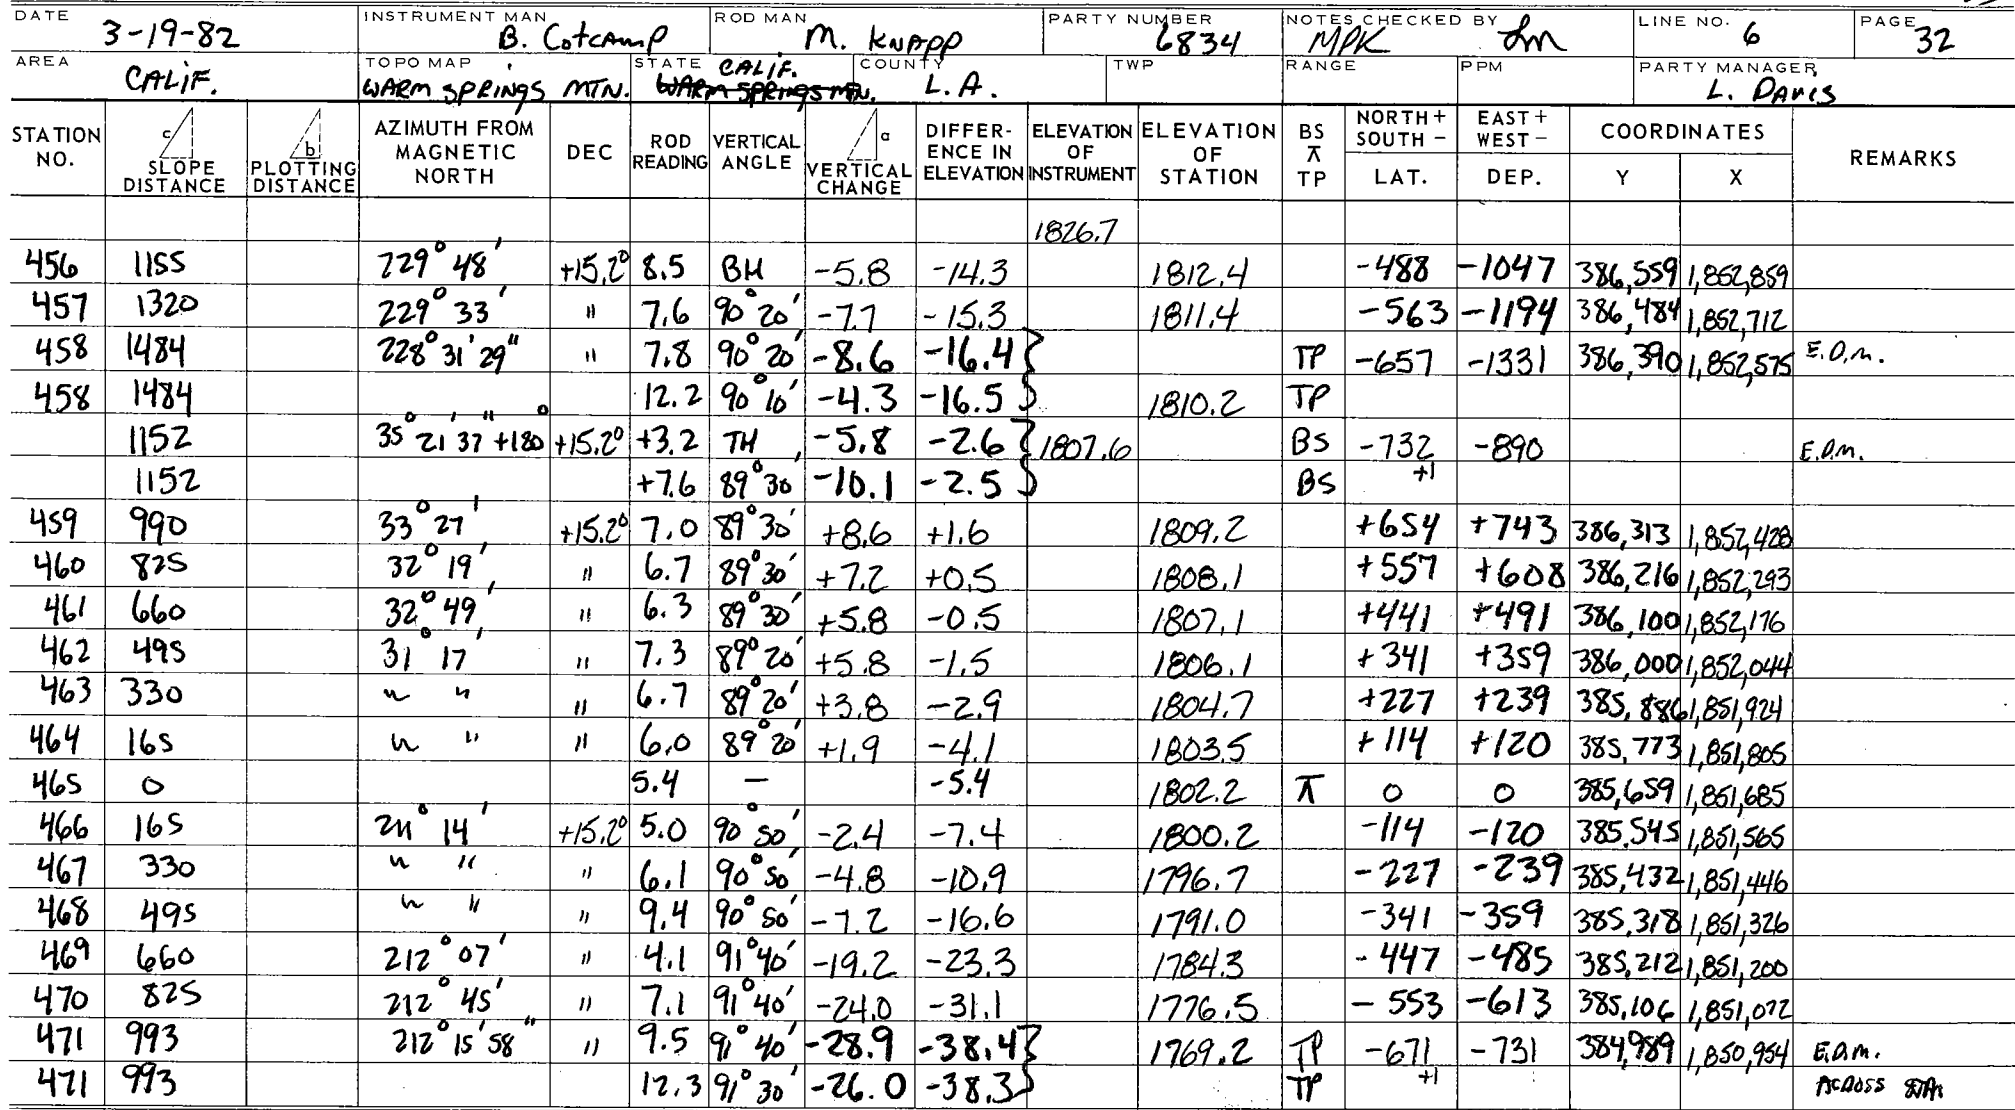 DATE 3-19-82 INSTRUMENT MAN B. Cotcamp ROD MAN M. KNAPP PARTY NUMBER 6834 NOTES CHECKED BY MPK LM LINE NO. 6 PAGE 32
AREA CALIF. TOPO MAP WARM SPRINGS MTN. STATE CALIF. WARM SPRINGS MTN. COUNTY L.A. TWP RANGE PPM PARTY MANAGER L. DAVIS
STATION NO. c SLOPE DISTANCE b PLOTTING DISTANCE AZIMUTH FROM MAGNETIC NORTH DEC ROD READING VERTICAL ANGLE a VERTICAL CHANGE DIFFERENCE IN ELEVATION ELEVATION OF INSTRUMENT ELEVATION OF STATION BS ⊼ TP NORTH + SOUTH - LAT. EAST + WEST - DEP. COORDINATES Y X REMARKS
1826.7
456 1155 229° 48' +15.2° 8.5 BH -5.8 -14.3 1812.4 -488 -1047 386,559 1,852,859
457 1320 229° 33' " 7.6 90° 20' -7.7 -15.3 1811.4 -563 -1194 386,484 1,852,712
458 1484 228° 31' 29" " 7.8 90° 20' -8.6 -16.4 } TP -657 -1331 386,390 1,852,575 E.D.M.
458 1484 12.2 90° 10' -4.3 -16.5 } 1810.2 TP
1152 35° 21' 37" +180° +15.2° +3.2 TH -5.8 -2.6 } 1807.6 BS -732 +1 -890 E.D.M.
1152 +7.6 89° 30 -10.1 -2.5 } BS
459 990 33° 27' +15.2° 7.0 89° 30' +8.6 +1.6 1809.2 +654 +743 386,313 1,852,428
460 825 32° 19' " 6.7 89° 30' +7.2 +0.5 1808.1 +557 +608 386,216 1,852,293
461 660 32° 49' " 6.3 89° 30' +5.8 -0.5 1807.1 +441 +491 386,100 1,852,176
462 495 31° 17' " 7.3 89° 20' +5.8 -1.5 1806.1 +341 +359 386,000 1,852,044
463 330 " " " 6.7 89° 20' +3.8 -2.9 1804.7 +227 +239 385,886 1,851,924
464 165 " " " 6.0 89° 20' +1.9 -4.1 1803.5 +114 +120 385,773 1,851,805
465 0 5.4 — -5.4 1802.2 ⊼ 0 0 385,659 1,851,685
466 165 211° 14' +15.2° 5.0 90° 50' -2.4 -7.4 1800.2 -114 -120 385,545 1,851,565
467 330 " " " 6.1 90° 50' -4.8 -10.9 1796.7 -227 -239 385,432 1,851,446
468 495 " " " 9.4 90° 50' -7.2 -16.6 1791.0 -341 -359 385,318 1,851,326
469 660 212° 07' " 4.1 91° 40' -19.2 -23.3 1784.3 -447 -485 385,212 1,851,200
470 825 212° 45' " 7.1 91° 40' -24.0 -31.1 1776.5 -553 -613 385,106 1,851,072
471 993 212° 15' 58" " 9.5 91° 40' -28.9 -38.4 } 1769.2 TP -671 +1 -731 384,989 1,850,954 E.D.M.
471 993 12.3 91° 30' -26.0 -38.3 } TP ACROSS STA.